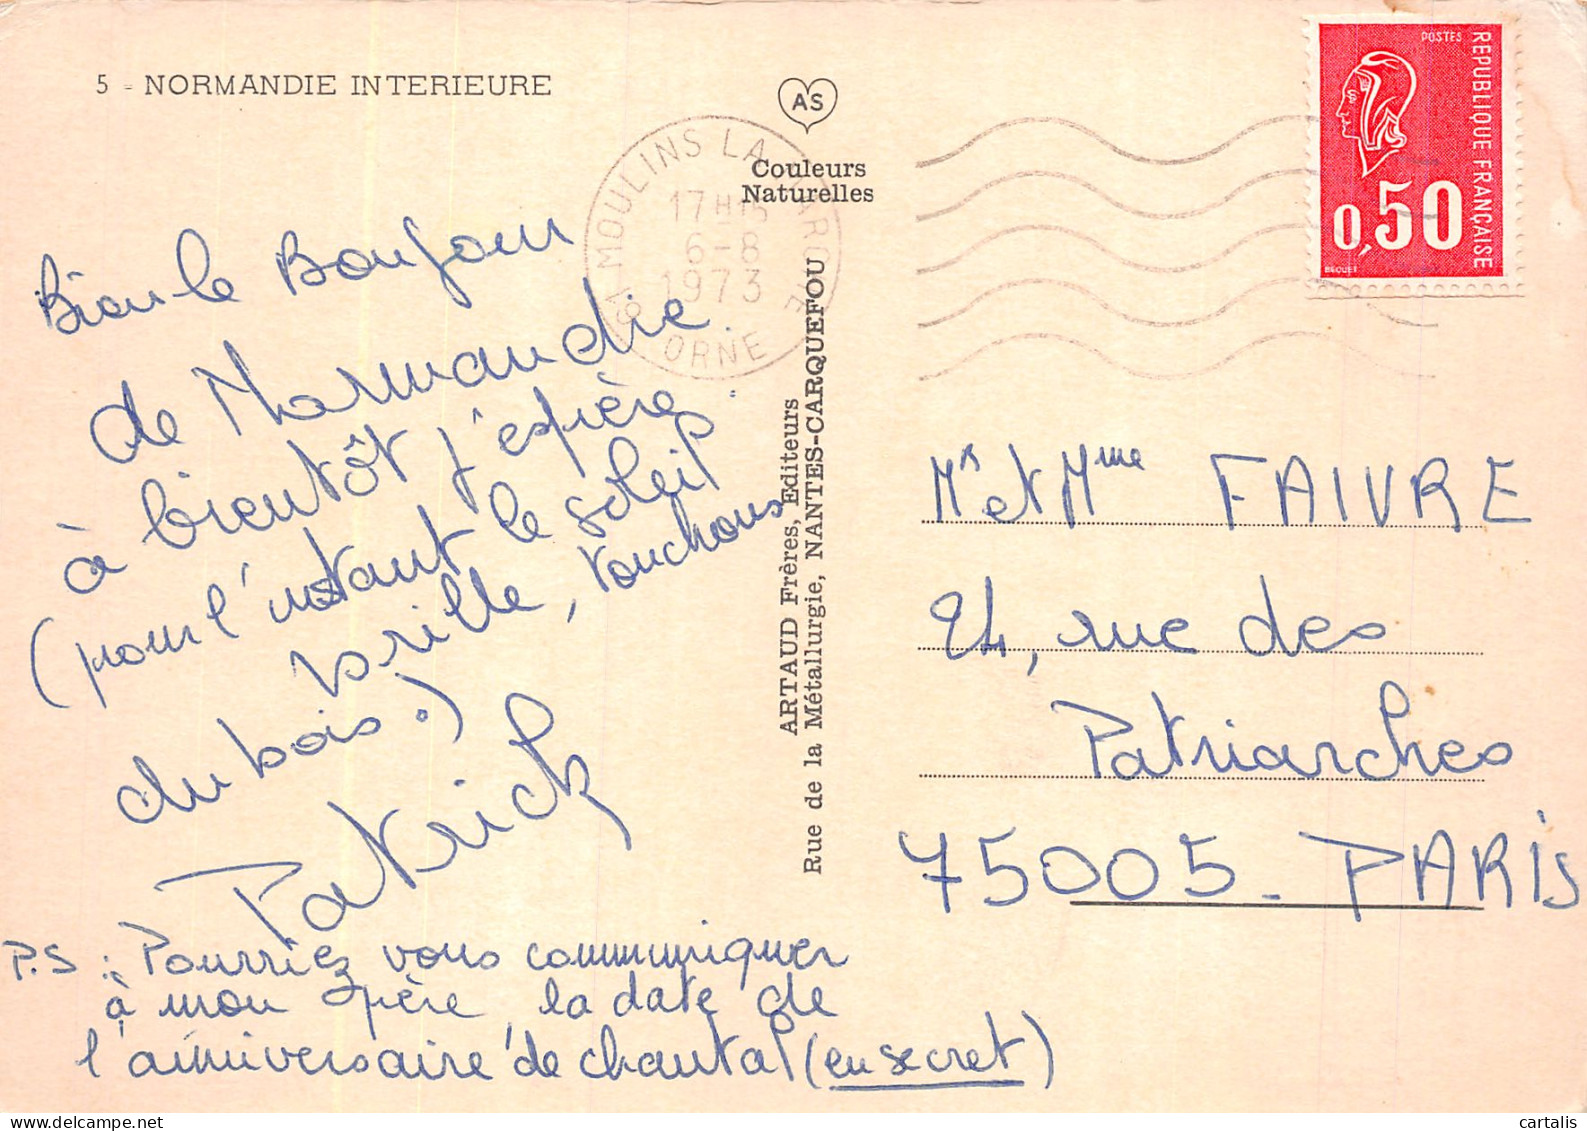 5 - NORMANDIE INTERIEURE
AS
Couleurs
Naturelles
61 MOULINS LA MARCHE
17H15
6-8
1973
ORNE
POSTES
REPUBLIQUE FRANÇAISE
0,50
BEQUET
Bien le Bonjour
de Normandie
à bientôt j'espère
(pour l'instant le soleil
brille, touchons
du bois !)
Patrick
P.S : Pourriez vous communiquer
à mon père, la date de
l'anniversaire de chantal (en secret)
ARTAUD Frères, Editeurs
Rue de la Métallurgie, NANTES-CARQUEFOU
Mr et Mme FAIVRE
24, rue des
Patriarches
75005 - PARIS
cartalis